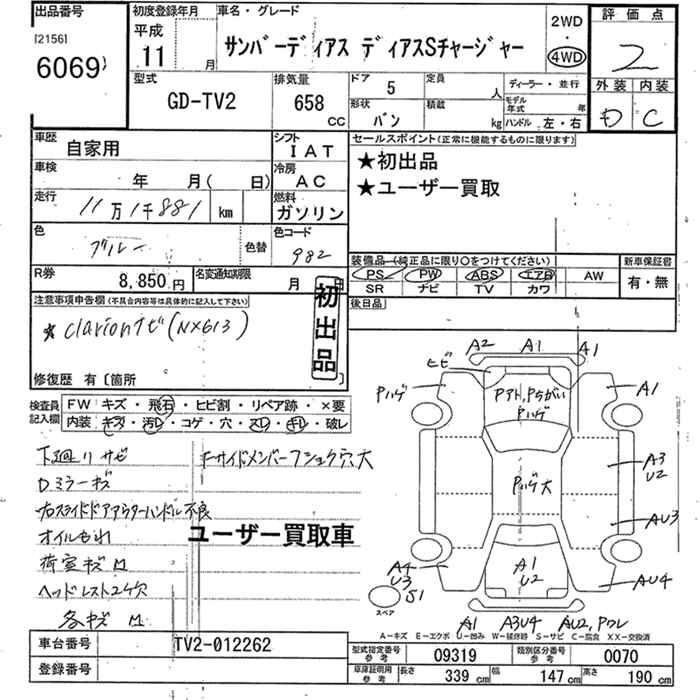 出品番号
[2156]
6069
初度登録年月
平成
11 月
車名・グレード
サンバーディアス ディアスSチャージャー
2WD
・
4WD
評価点
2
外装 内装
D C
型式
GD-TV2
排気量
658 cc
ドア 5
形状 バン
定員 人
積載 kg
ディーラー・並行
モデル年式 年
ハンドル 左・右
車歴 自家用
シフト IAT
車検 年 月( 日)
冷房 AC
走行 11万1千881 km
燃料 ガソリン
色 ブルー 色替
色コード 982
R券 8,850円
名変通知期限 月 日
セールスポイント(正常に機能するものに限ります)
★初出品
★ユーザー買取
装備品(純正品に限り○をつけてください)
PS PW ABS エアB AW
SR ナビ TV カワ
新車保証書
有・無
後日品
注意事項申告欄(不具合内容等は具体的に記入して下さい)
★ clarionナビ(NX613)
初出品
修復歴 有〔箇所
検査員記入欄
FW キズ・飛石・ヒビ割・リペア跡・×要
内装 キズ・汚レ・コゲ・穴・スレ・キレ・破レ
下廻りサビ
Fサイドメンバーフショク穴大
Dミラーキズ
オイルもれ
ユーザー買取車
荷室キズM
ヘッドレスト2ケ穴
各キズM
A2 A1 A1
ヒビ
Pハゲ
Pアト,Pちがい
Pハゲ
A1
Pハゲ大
A3
U2
AU3
AU4
A4
U3
S1
スペア
A1
U2
A1 A3U4 AU2,Pワレ
A-キズ E-エクボ U-凹み W-補修跡 S-サビ C-腐食 XX-交換済
車台番号 TV2-012262
登録番号
型式指定番号 参考 09319
類別区分番号 参考 0070
車庫証明用 参考 長さ 339 cm 幅 147 cm 高さ 190 cm